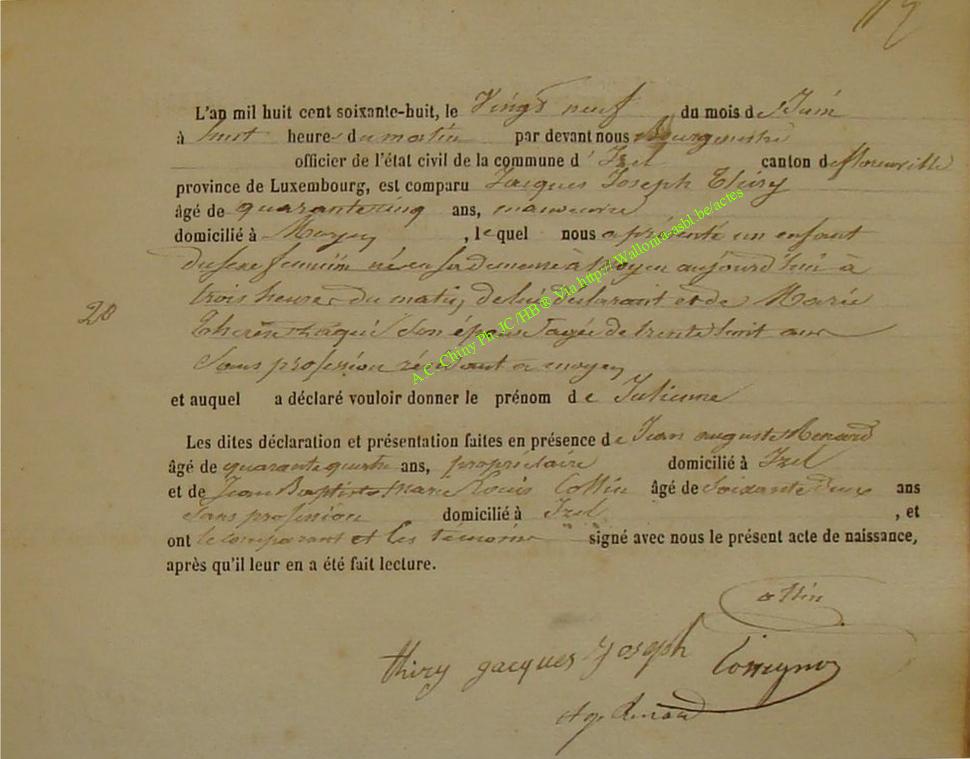 L'an mil huit cent soixante-huit, le Vingt neuf du mois de Juin
à huit heure du matin par devant nous Bourgmestre
officier de l'état civil de la commune d'Izel canton de florenville
province de Luxembourg, est comparu Jacques Joseph Thiry
âgé de quarante cinq ans, manoeuvre
domicilié à Moyen, lequel nous a présenté un enfant
du sexe féminin né en sa demeure à Moyen aujourd'hui à
trois heures du matin, de lui déclarant et de Marie
20
Therèse son épouse agée de trente huit ans
sans profession résidant à moyen
et auquel a déclaré vouloir donner le prénom de Julienne
Les dites déclaration et présentation faites en présence de Jean auguste Renard
âgé de quarante quatre ans, propriétaire domicilié à Izel
et de Jean Baptiste Marie Louis Collin âgé de Soixante deux ans
sans profession domicilié à Izel, et
ont le comparant et les témoins signé avec nous le présent acte de naissance,
après qu'il leur en a été fait lecture.
Collin
thiry jacques joseph
Renard
A.C. Chiny Ph JC/HB ® Via http://Wallonia-asbl.be/actes